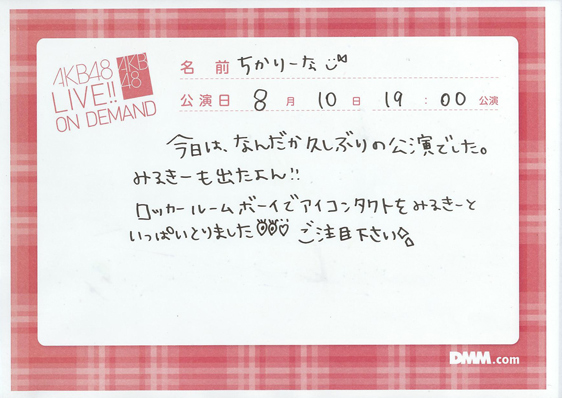 AKB48
LIVE!!
ON DEMAND
AKB
48
名 前 ちかりーな
公演日 8月10日 19:00公演
今日は、なんだか久しぶりの公演でした。
みるきーも出たよん!!
ロッカールームボーイでアイコンタクトをみるきーと
いっぱいとりました ご注目下さい
DMM.com